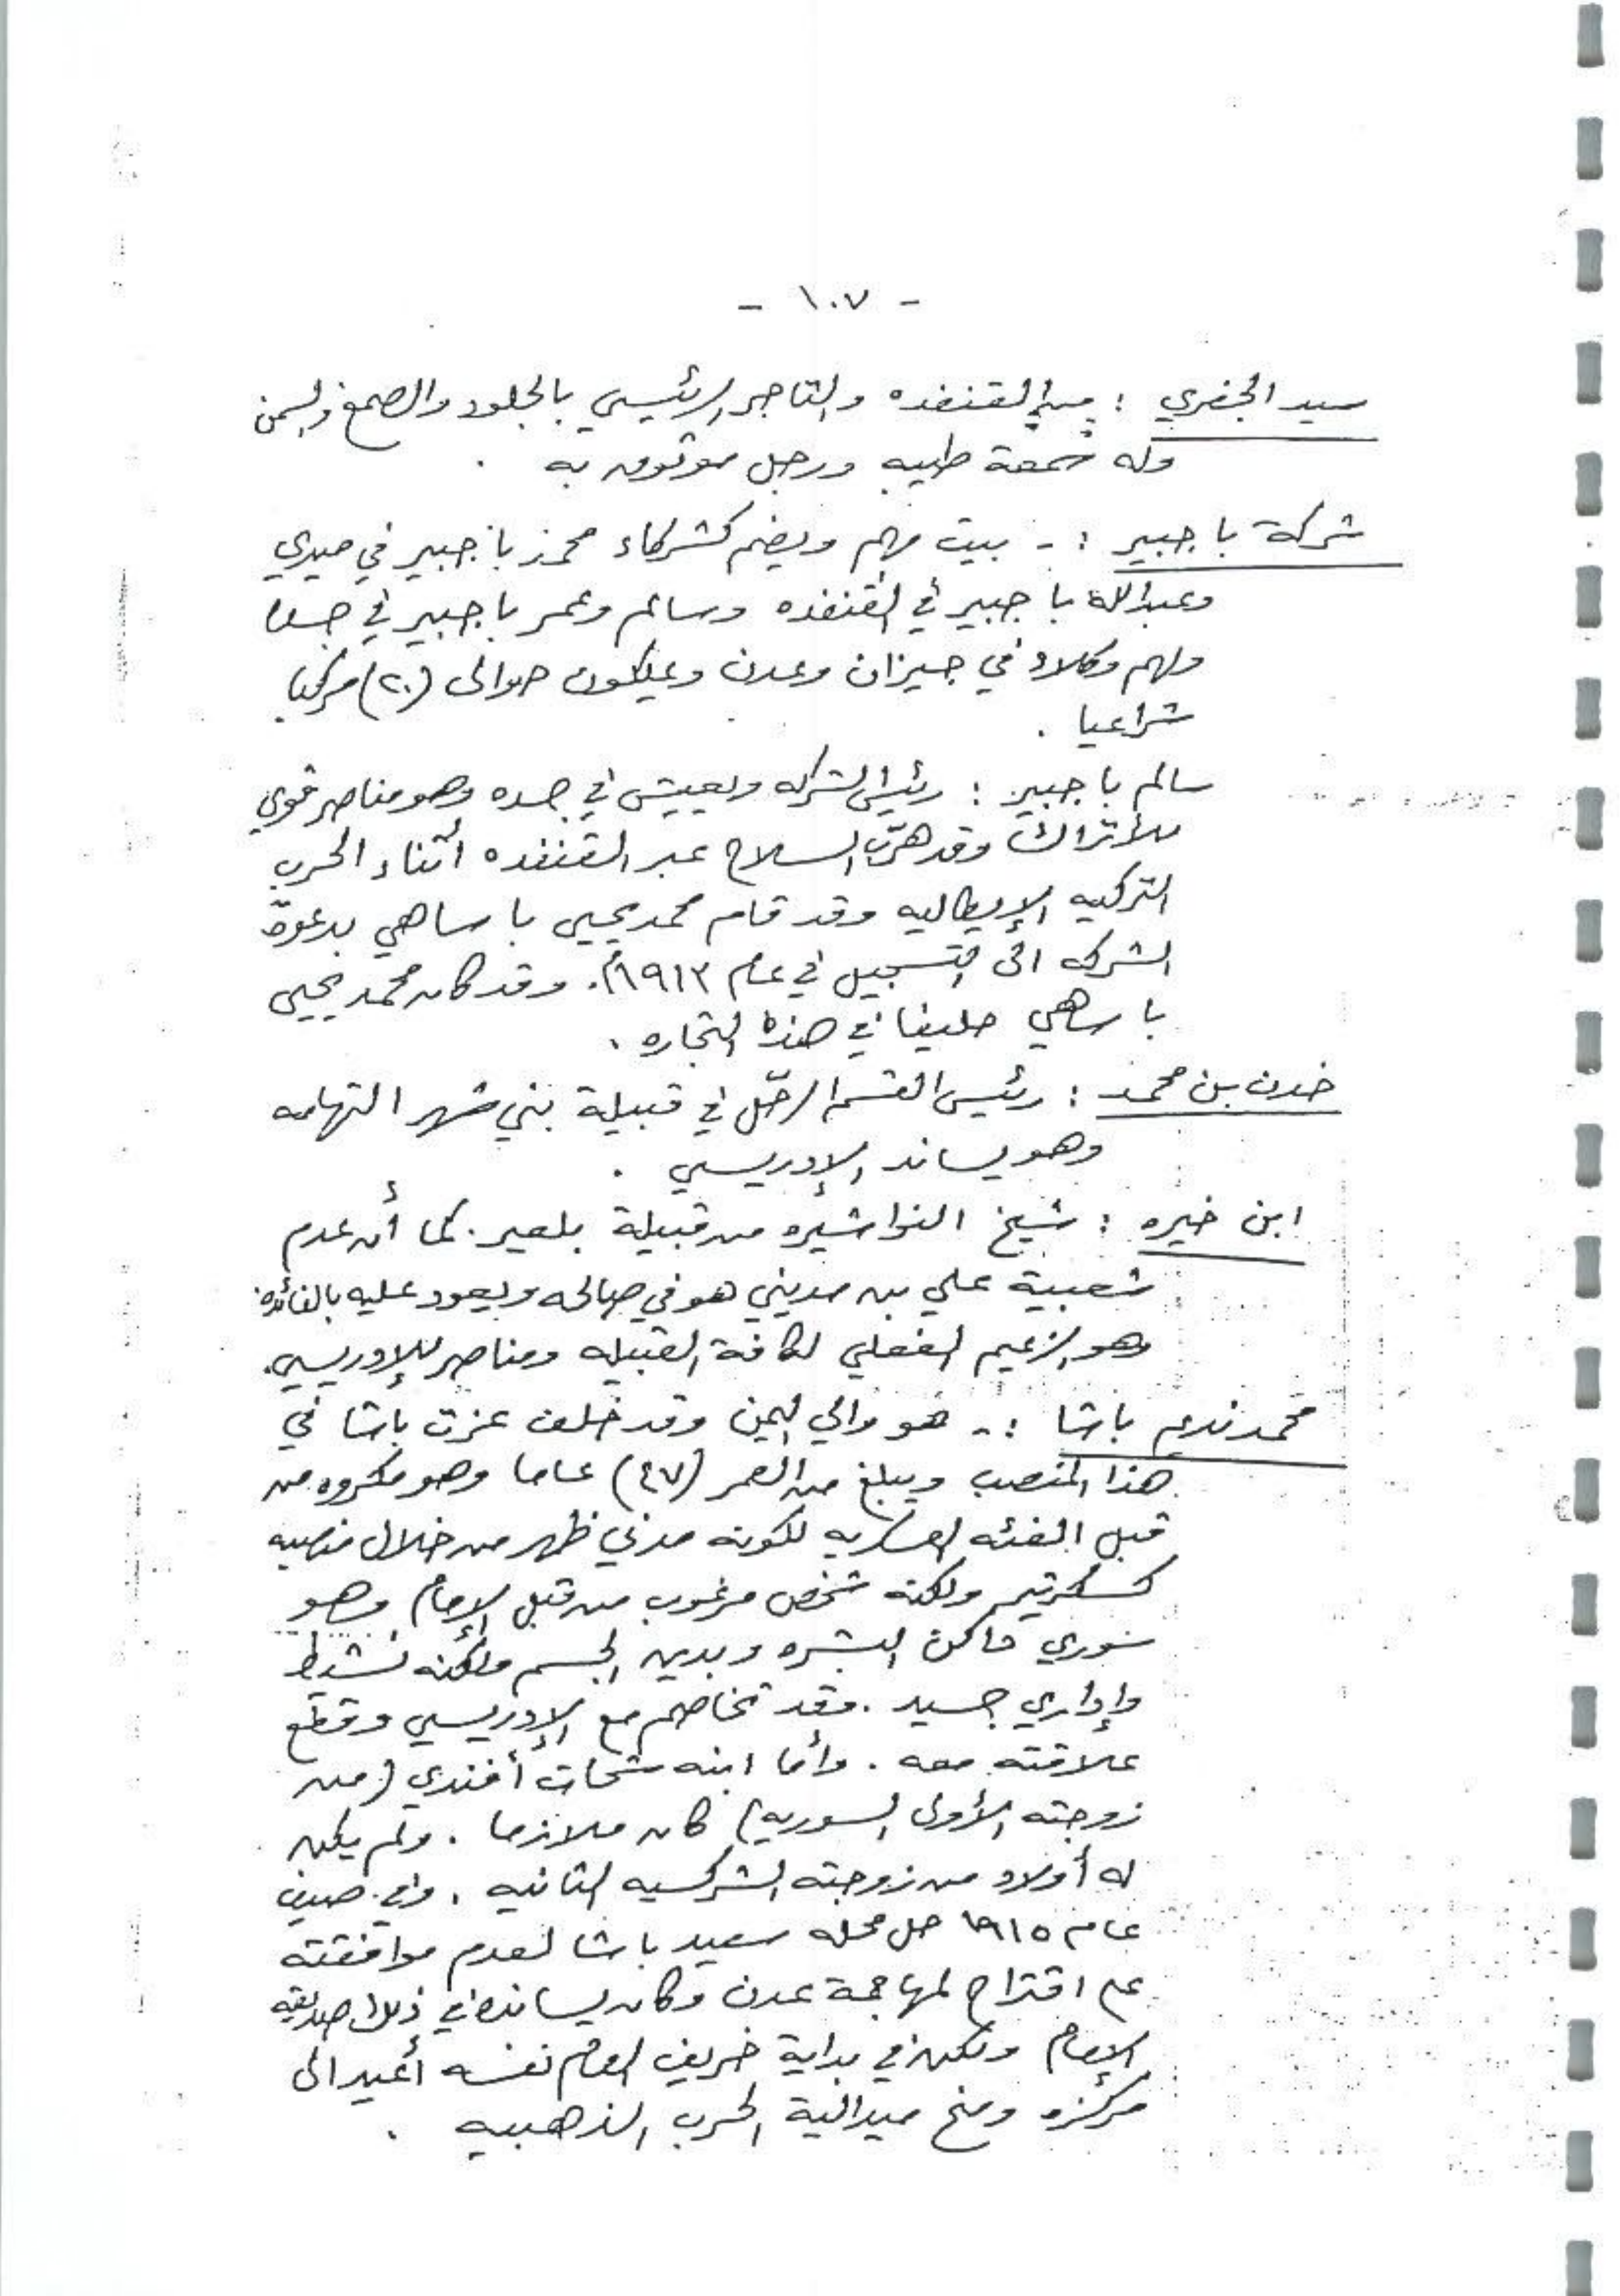 - ١٠٧ -
سيد الجفري : من القنفده والتاجر الرئيسي بالجلود والصمغ والسمن
وله سمعة طيبه ورجل موثوق به .
شركة باجبير :- بيت مهم ويضم كشركاء محمد باجبير في ميدي
وعبدالله باجبير في القنفده وسالم وعمر باجبير في جده
ولهم وكلاء في جيزان وعدن ويملكون حوالى (٢٠) مركبا
شراعيا .
سالم باجبير : رئيس الشركه ويعيش في جده وهو مناصر قوي
للأتراك وقد هرّب السلاح عبر القنفده أثناء الحرب
التركيه الإيطاليه وقد قام محمد يحيى باساهي بدعوة
الشركه الى التسجيل في عام ١٩١٣م. وقد كان محمد يحيى
باساهي حليفا في هذه التجاره .
خدن بن محمد : رئيس القسم الرحّل في قبيلة بني شهر التهامه
وهو يساند الإدريسي .
ابن خيره : شيخ النواشيره من قبيلة بلعير. كما أن عدم
شعبية علي بن مديني هو في صالحه ويعود عليه بالفائده
وهو الزعيم الفعلي لكافة القبيله ومناصر للإدريسي.
محمد نديم باشا :- هو والي اليمن وقد خلف عزت باشا في
هذا المنصب ويبلغ من العمر (٤٧) عاما وهو مكروه من
قبل الفئه العسكريه لكونه مدني ظهر من خلال منصبه
كسكرتير ولكنه شخص مرغوب من قبل الإمام وهو
سوري داكن البشره وبدين الجسم ولكنه نشيط
وإداري جيد . وقد تخاصم مع الإدريسي وقطع
علاقته معه . وأما ابنه شحات أفندي (من
زوجته الأولى السوريه) كان ملازما . ولم يكن
له أولاد من زوجته الشركسيه الثانيه . وفي صيف
عام ١٩١٥ حل محله سعيد باشا لعدم موافقته
على اقتراح لمهاجمة عدن وكان يسانده في ذلك صديقه
الإمام ولكن في بداية خريف العام نفسه أعيد الى
مركزه ومنح ميدالية الحرب الذهبيه .